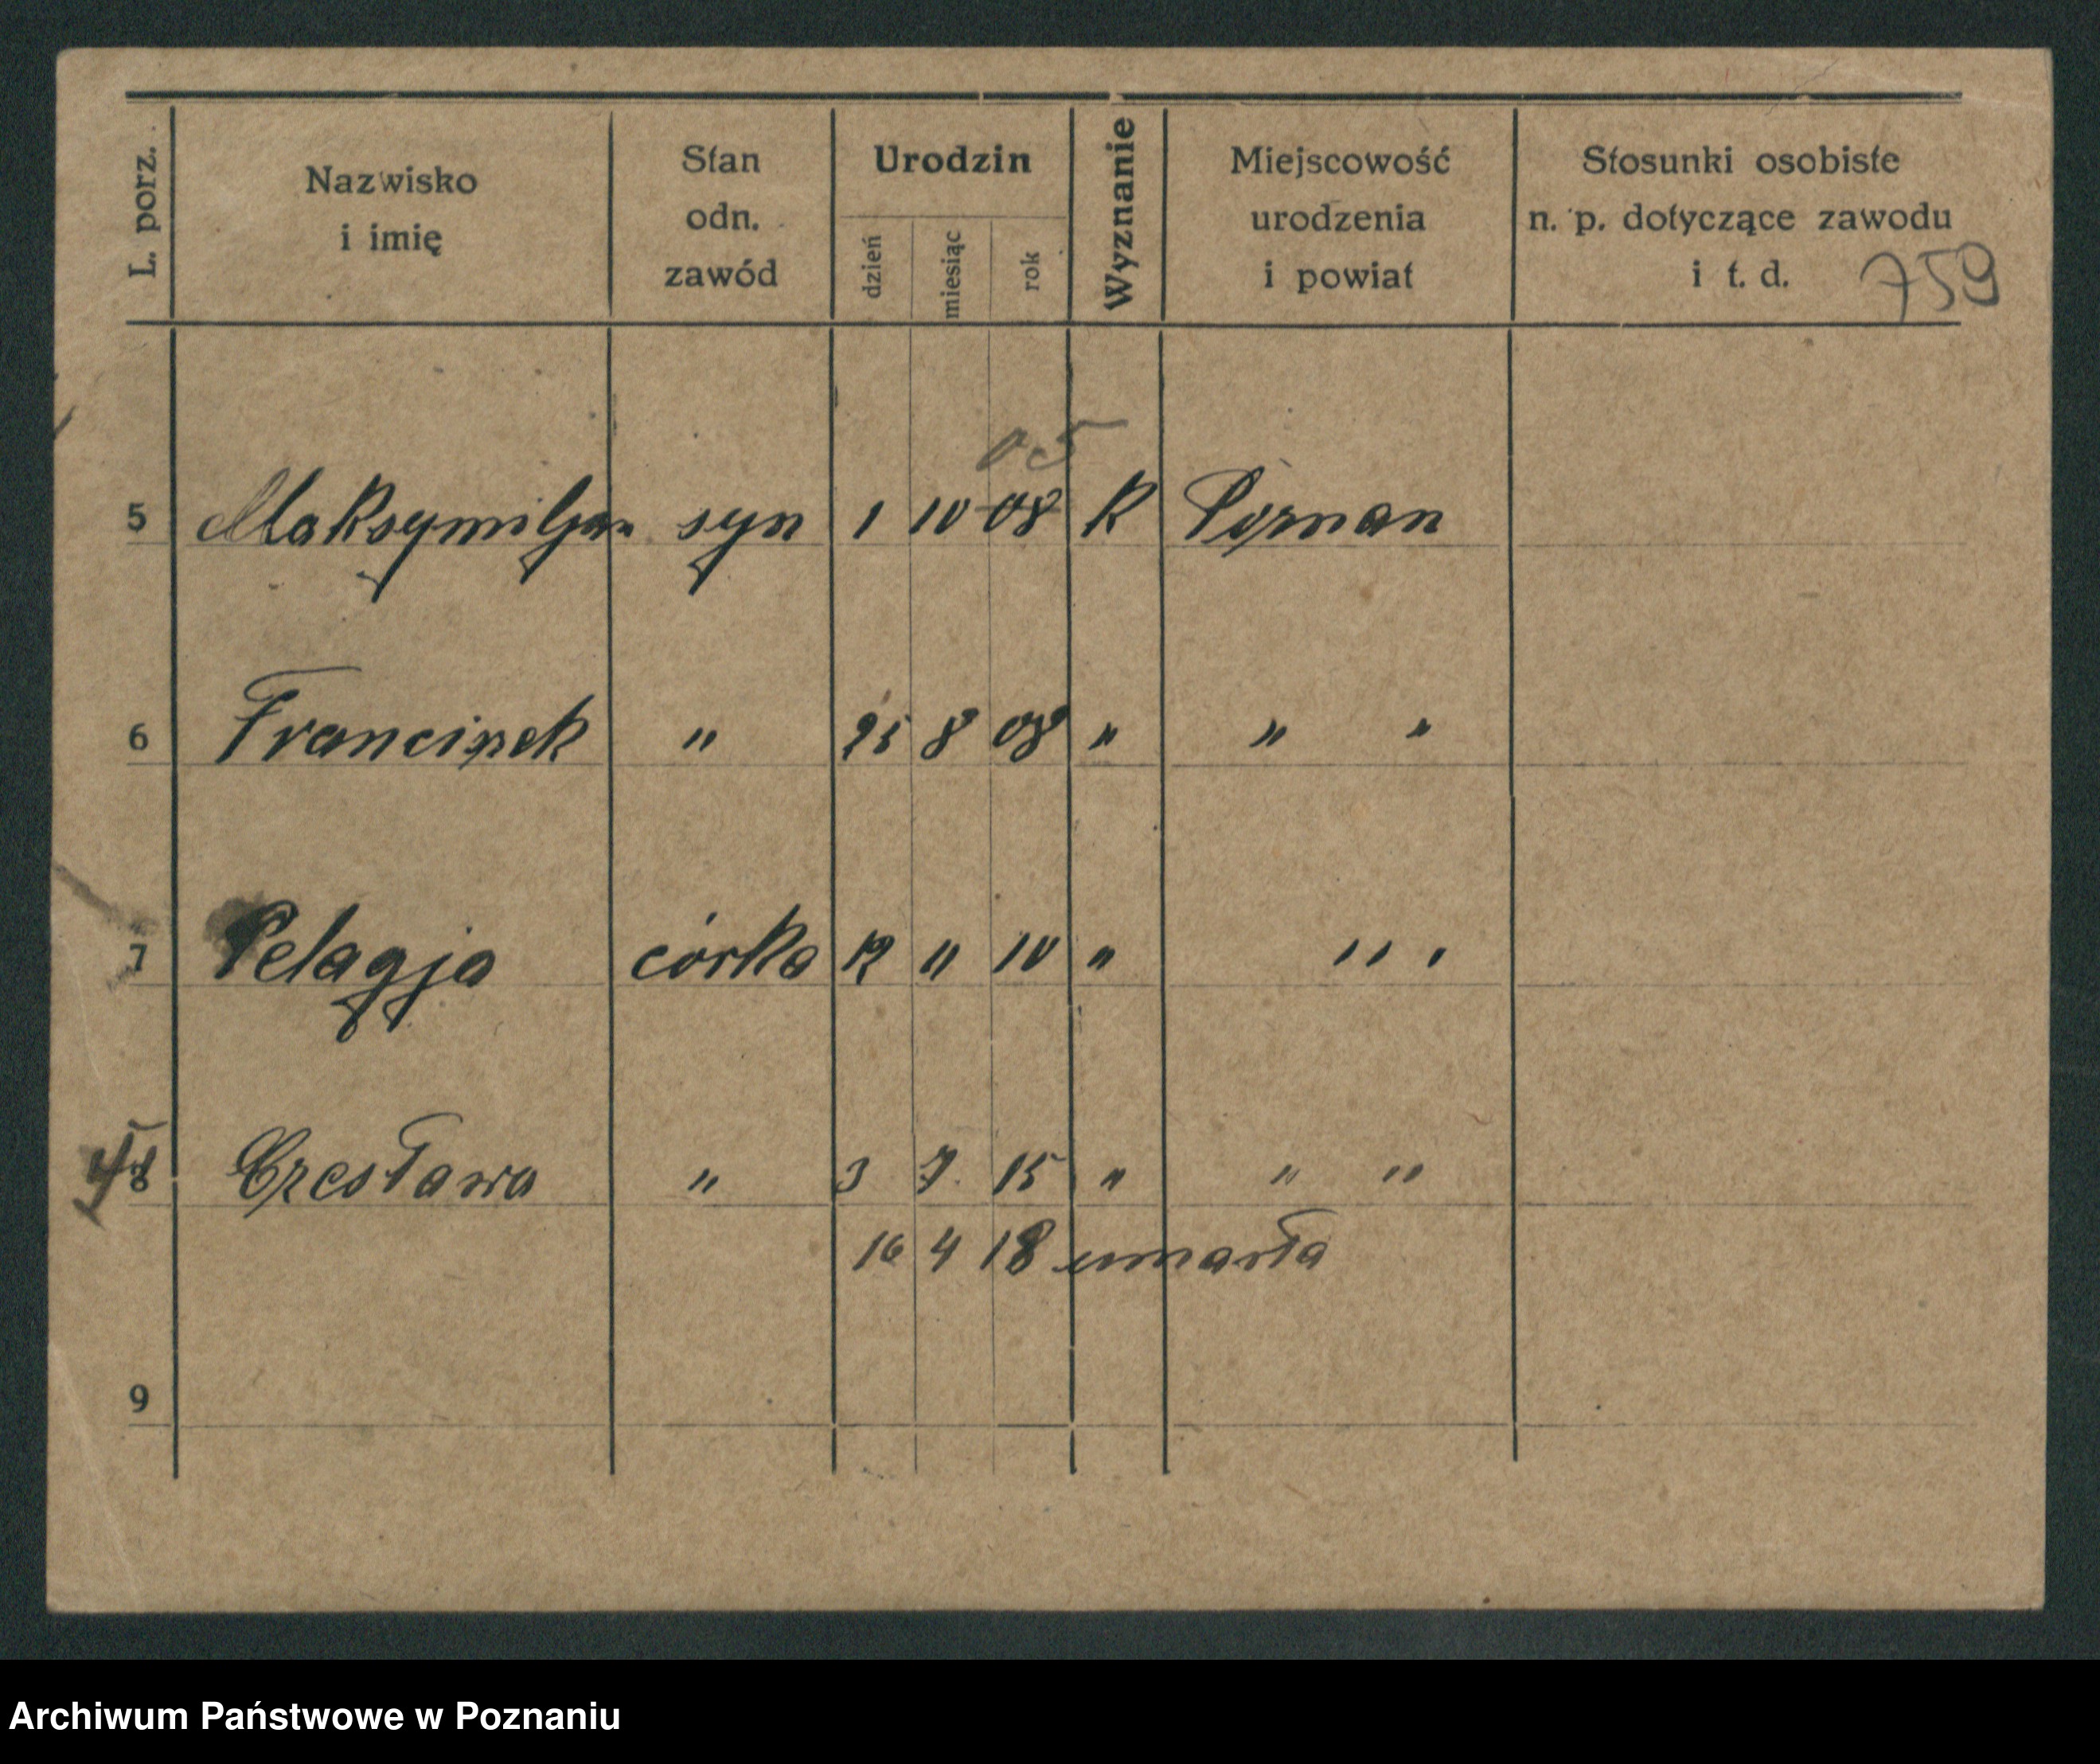 L. porz. Nazwisko i imię Stan odn. zawód Urodzin dzień miesiąc rok Wyznanie Miejscowość urodzenia i powiat Stosunki osobiste n. p. dotyczące zawodu i t. d. 759
05
5 Maksymiljan syn 1 10 08 k Poznan
6 Franciszek " 25 8 08 " " "
7 Pelagja córka 12 11 10 " " "
8 Czesława " 3 7. 15 " " "
16 4 18 umarła
9
Archiwum Państwowe w Poznaniu